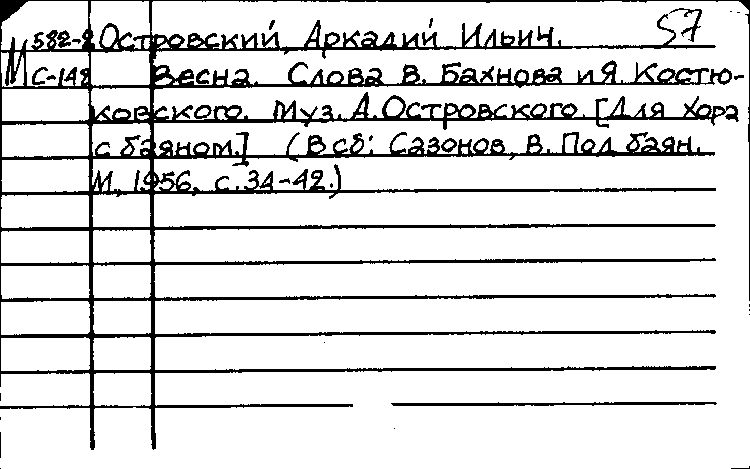 57
М 582-8 Островский, Аркадий Ильич.
С-148 Весна. Слова В. Бахнова и Я. Костю-
ковского. Муз. А. Островского. [Для хора
с баяном.] (В сб: Сазонов, В. Под баян.
М., 1956, с. 34-42.)